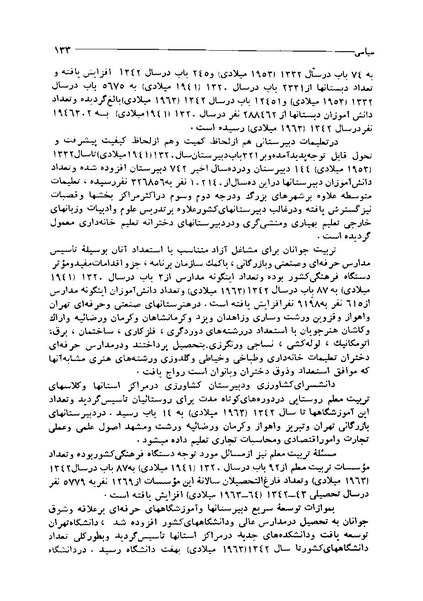 سیاسی ۱۳۳
به ۷۴ باب درسال ۱۳۳۲ (۱۹۵۳ میلادی) و۲۴۵ باب درسال ۱۳۴۲ افزایش یافته و
تعداد دبستانها از۲۳۳۱ باب درسال ۱۳۲۰ (۱۹۴۱ میلادی) به ۵۶۷۵ باب درسال
۱۳۳۲ (۱۹۵۳ میلادی) و۱۲۴۵۱ باب درسال ۱۳۴۲ (۱۹۶۳ میلادی)بالغ‌گردیده وتعداد
دانش‌آموزان دبستانها از ۲۸۸۴۶۲ نفر درسال ۱۳۲۰ (۱۹۴۱میلادی) به ۱۹۴۶۳۰۲
نفردرسال ۱۳۴۲ (۱۹۶۳ میلادی) رسیده است.
درتعلیمات دبیرستانی هم ازلحاظ کمیت وهم ازلحاظ کیفیت پیشرفت و
تحول قابل توجه‌پدیدآمده‌وبر۳۲۱باب‌دبیرستان‌سال۱۳۲۰(۱۹۴۱میلادی)تاسال۱۳۳۲
(۱۹۵۳ میلادی) ۱۴۴ دبیرستان ودرده‌سال اخیر ۷۴۲ دبیرستان افزوده شده وتعداد
دانش‌آموزان دبیرستانها دراین ده‌سال‌از ۱۰۲۱۴۰ نفر به۳۲۶۸۵۶ نفررسیده، تعلیمات
متوسطه علاوه برشهرهای بزرگ ودرجه دوم وسوم دراکثرمراکز بخشها وقصبات
نیزگسترش یافته ودرغالب دبیرستانهای‌کشورعلاوه برتدریس علوم وادبیات وزبانهای
خارجی تعلیم بهیاری ومنشی‌گری ودردبیرستانهای دخترانه تعلیم خانه‌داری معمول
گردیده است.
تربیت جوانان برای مشاغل آزاد متناسب با استعداد آنان بوسیلهٔ تأسیس
مدارس حرفه‌ای‌وصنعتی وبازرگانی، باکمک سازمان برنامه، جزو اقدامات‌مفیدومؤثر
دستگاه فرهنگی‌کشور بوده وتعداد اینگونه مدارس از۳ باب درسال ۱۳۲۰ (۱۹۴۱
میلادی) به ۸۷ باب درسال ۱۳۴۲(۱۹۶۳ میلادی) وتعداد دانش‌آموزان اینگونه مدارس
از۶۱۵ نفر به۹۱۹۸ نفرافزایش یافته است. درهنرستانهای صنعتی وحرفه‌ای تهران
واهواز وقزوین ورشت وساری وزاهدان ویزد وکرمانشاهان وکرمان ورضائیه واراک
وکاشان هنرجویان با استعداد دررشته‌های دورگری، فلزکاری، ساختمان، برق،
اتومکانیک، لوله‌کشی، نساجی ورنگرزی‌بتحصیل پرداختند ودرمدارس حرفه‌ای
دختران تعلیمات خانه‌داری وطباخی وخیاطی وگلدوزی ورشته‌های هنری مشابه‌آنها
که موافق استعداد وذوق دختران وبانوان است رواج یافت.
دانشسرای‌کشاورزی ودبیرستان کشاورزی درمراکز استانها وکلاسهای
تربیت معلم روستایی دردوره‌های‌کوتاه مدت برای روستائیان تأسیس‌گردید وتعداد
این آموزشگاهها تا سال ۱۳۴۲ (۱۹۶۳ میلادی) به ۱۴ باب رسید. دردبیرستانهای
بازرگانی تهران وتبریز واهواز وکرمان ورضائیه ورشت ومشهد اصول علمی وعملی
تجارت واموراقتصادی ومحاسبات تجاری تعلیم داده میشود.
مسئلهٔ تربیت معلم نیز ازمسائل مورد توجه دستگاه فرهنگی‌کشوربوده وتعداد
مؤسسات تربیت معلم از۹۲ باب درسال ۱۳۲۰ (۱۹۴۱ میلادی) به۸۷ باب درسال۱۳۴۲
(۱۹۶۳ میلادی) وتعداد فارغ‌التحصیلان سالانهٔ این مؤسسات از۱۲۶۹ نفر به ۵۷۷۹ نفر
درسال تحصیلی ۴۳-۱۳۴۲ (۶۴-۱۹۶۳ میلادی) افزایش یافته است.
بموازات توسعهٔ سریع دبیرستانها وآموزشگاههای حرفه‌ای برعلاقه وشوق
جوانان به تحصیل درمدارس عالی ودانشگاههای‌کشور افزوده شد، دانشگاه‌تهران
توسعه یافت ودانشکده‌های جدید درمراکز استانها تأسیس‌گردید وبطورکلی تعداد
دانشگاههای‌کشورتا سال ۱۳۴۲(۱۹۶۳ میلادی) بهفت دانشگاه رسید. دردانشگاه